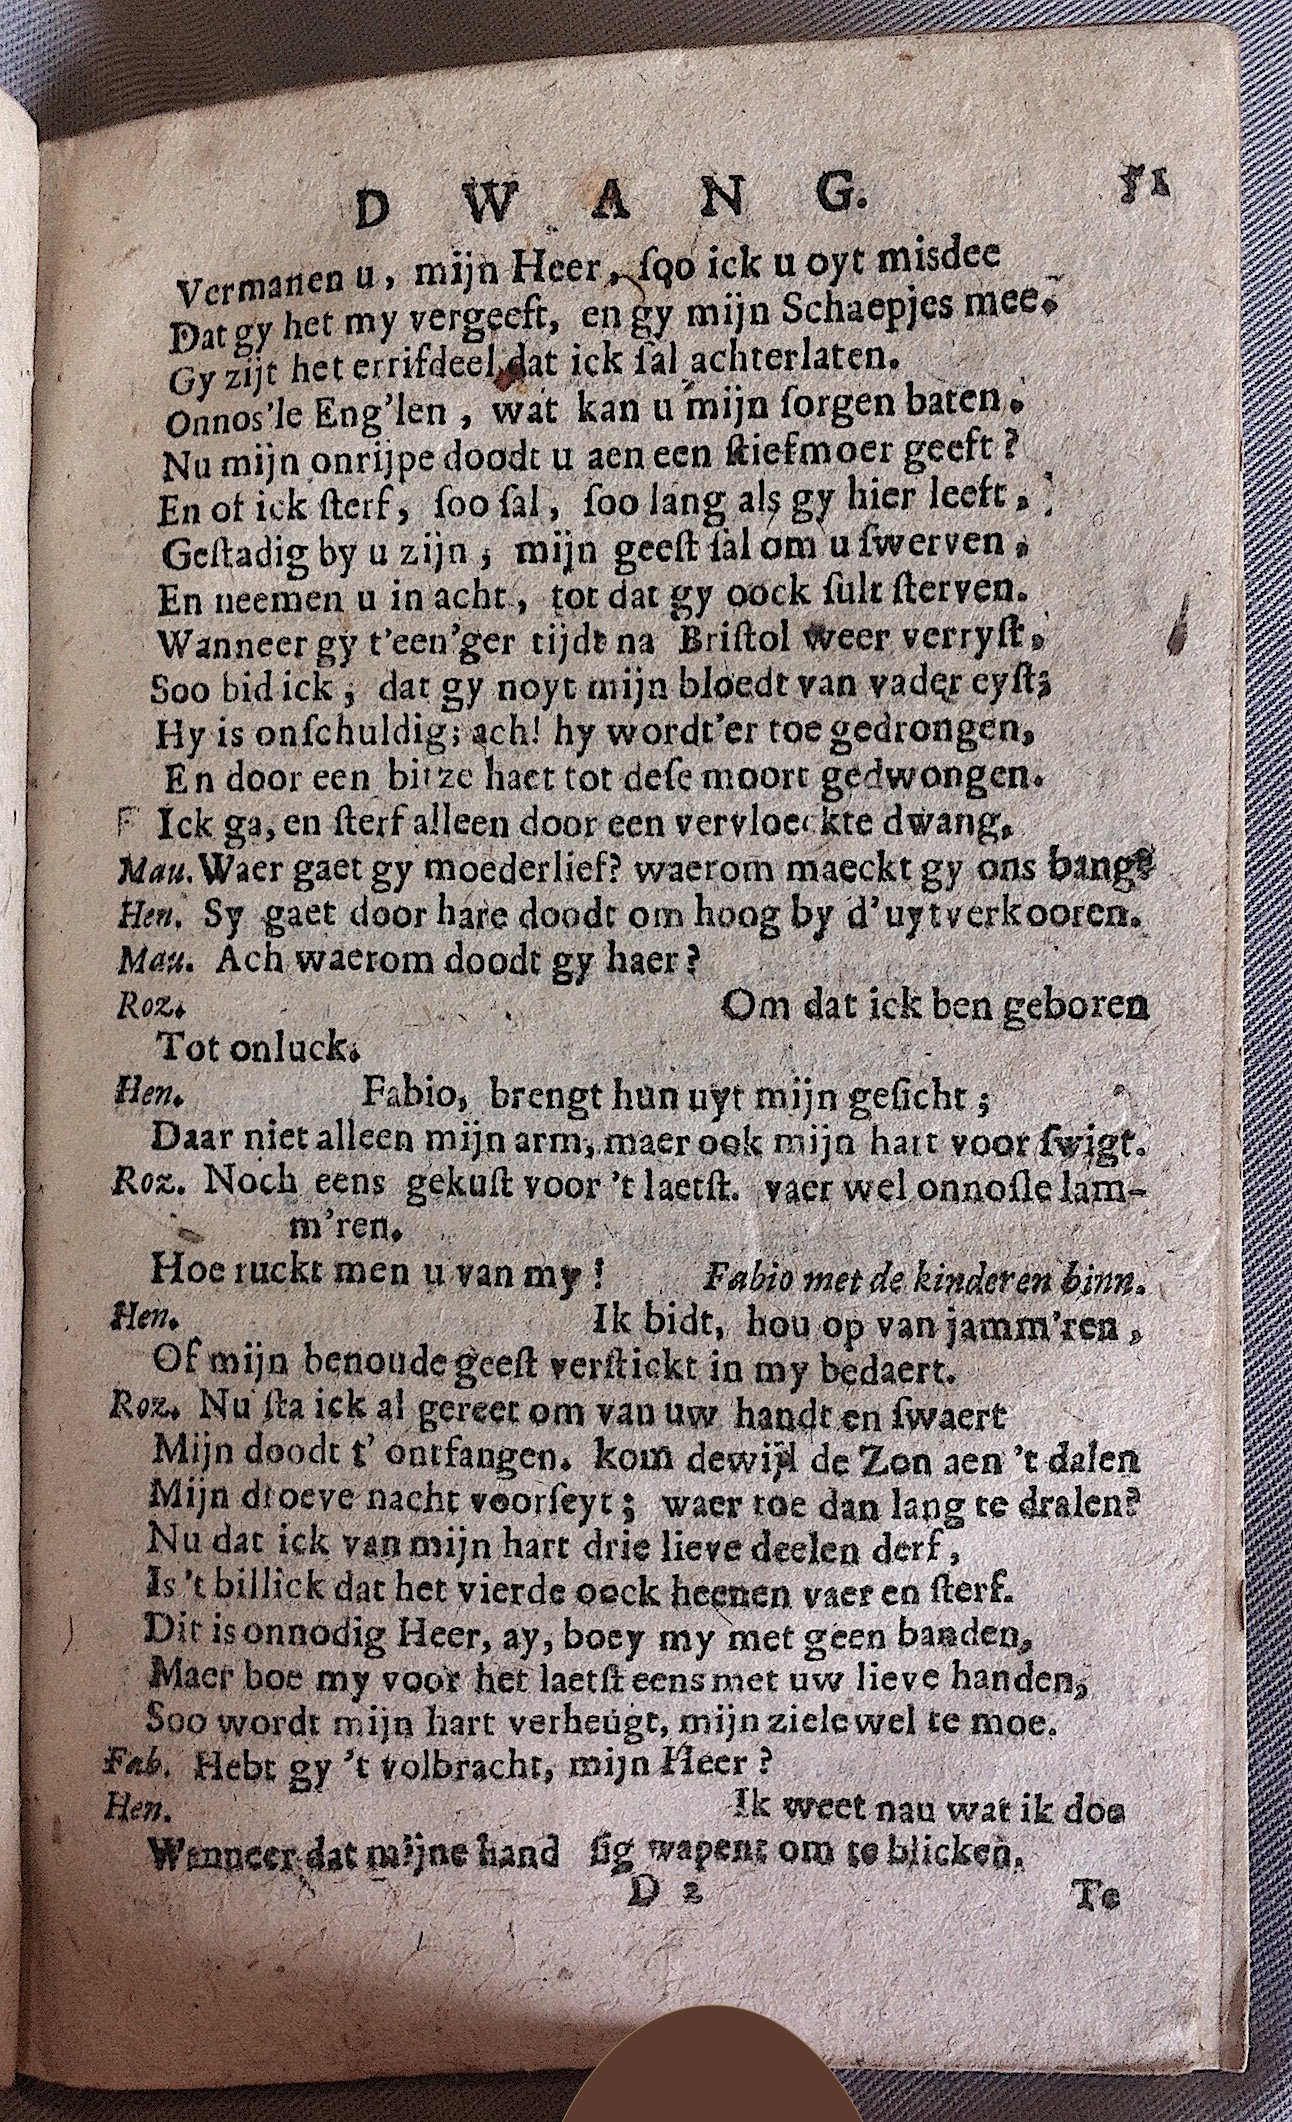 D W A N G. 51
Vermanen u, mijn Heer, ſoo ick u oyt misdee
Dat gy het my vergeeft, en gy mijn Schaepjes mee.
Gy zijt het errifdeel dat ick ſal achterlaten.
Onnos'le Eng'len, wat kan u mijn ſorgen baten,
Nu mijn onrijpe doodt u aen een ſtiefmoer geeft?
En of ick ſterf, ſoo ſal, ſoo lang als gy hier leeft,
Geſtadig by u zijn, mijn geeſt ſal om u ſwerven,
En neemen u in acht, tot dat gy oock ſult ſterven.
Wanneer gy t'een'ger tijdt na Briſtol weer verryſt,
Soo bid ick, dat gy noyt mijn bloedt van vader eyſt;
Hy is onſchuldig; ach! hy wordt'er toe gedrongen,
En door een bitze haet tot deſe moort gedwongen.
Ick ga, en ſterf alleen door een vervloeckte dwang,
Mau. Waer gaet gy moederlief? waerom maeckt gy ons bang?
Hen. Sy gaet door hare doodt om hoog by d'uytverkooren.
Mau. Ach waerom doodt gy haer?
Roz. Om dat ick ben geboren
Tot onluck.
Hen. Fabio, brengt hun uyt mijn geſicht;
Daar niet alleen mijn arm, maer ook mijn hart voor ſwigt.
Roz. Noch eens gekuſt voor 't laetſt. vaer wel onnoſle lam-
m'ren.
Hoe ruckt men u van my! Fabio met de kinderen binn.
Hen. Ik bidt, hou op van jamm'ren,
Of mijn benoude geeſt verſtickt in my bedaert.
Roz. Nu ſta ick al gereet om van uw handt en ſwaert
Mijn doodt t' ontfangen. kom dewijl de Zon aen 't dalen
Mijn droeve nacht voorſeyt; waer toe dan lang te dralen?
Nu dat ick van mijn hart drie lieve deelen derf,
Is 't billick dat het vierde oock heenen vaer en ſterf.
Dit is onnodig Heer, ay, boey my met geen banden,
Maer boe my voor het laetſt eens met uw lieve handen,
Soo wordt mijn hart verheugt, mijn ziele wel te moe.
Fab. Hebt gy 't volbracht, mijn Heer?
Hen. Ik weet nau wat ik doe
Wanneer dat mijne hand ſig wapent om te blicken,
D 2 Te